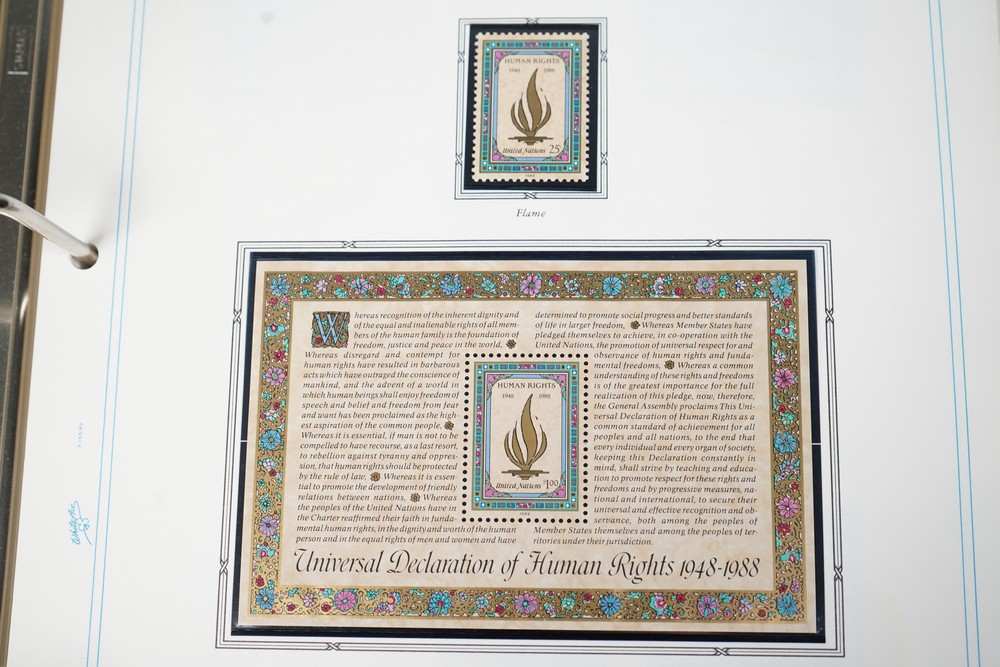 HUMAN RIGHTS
1948 1988
United Nations 25
1988
Flame
Whereas recognition of the inherent dignity and
of the equal and inalienable rights of all mem-
bers of the human family is the foundation of
freedom, justice and peace in the world,
Whereas disregard and contempt for
human rights have resulted in barbarous
acts which have outraged the conscience of
mankind, and the advent of a world in
which human beings shall enjoy freedom of
speech and belief and freedom from fear
and want has been proclaimed as the high-
est aspiration of the common people,
Whereas it is essential, if man is not to be
compelled to have recourse, as a last resort,
to rebellion against tyranny and oppres-
sion, that human rights should be protected
by the rule of law, Whereas it is essen-
tial to promote the development of friendly
relations between nations, Whereas
the peoples of the United Nations have in
the Charter reaffirmed their faith in funda-
mental human rights, in the dignity and worth of the human
person and in the equal rights of men and women and have
determined to promote social progress and better standards
of life in larger freedom, Whereas Member States have
pledged themselves to achieve, in co-operation with the
United Nations, the promotion of universal respect for and
observance of human rights and funda-
mental freedoms, Whereas a common
understanding of these rights and freedoms
is of the greatest importance for the full
realization of this pledge, now, therefore,
the General Assembly proclaims This Uni-
versal Declaration of Human Rights as a
common standard of achievement for all
peoples and all nations, to the end that
every individual and every organ of society,
keeping this Declaration constantly in
mind, shall strive by teaching and educa-
tion to promote respect for these rights and
freedoms and by progressive measures, na-
tional and international, to secure their
universal and effective recognition and ob-
servance, both among the peoples of
Member States themselves and among the peoples of ter-
ritories under their jurisdiction.
HUMAN RIGHTS
1948 1988
United Nations $1.00
1988
Universal Declaration of Human Rights 1948-1988